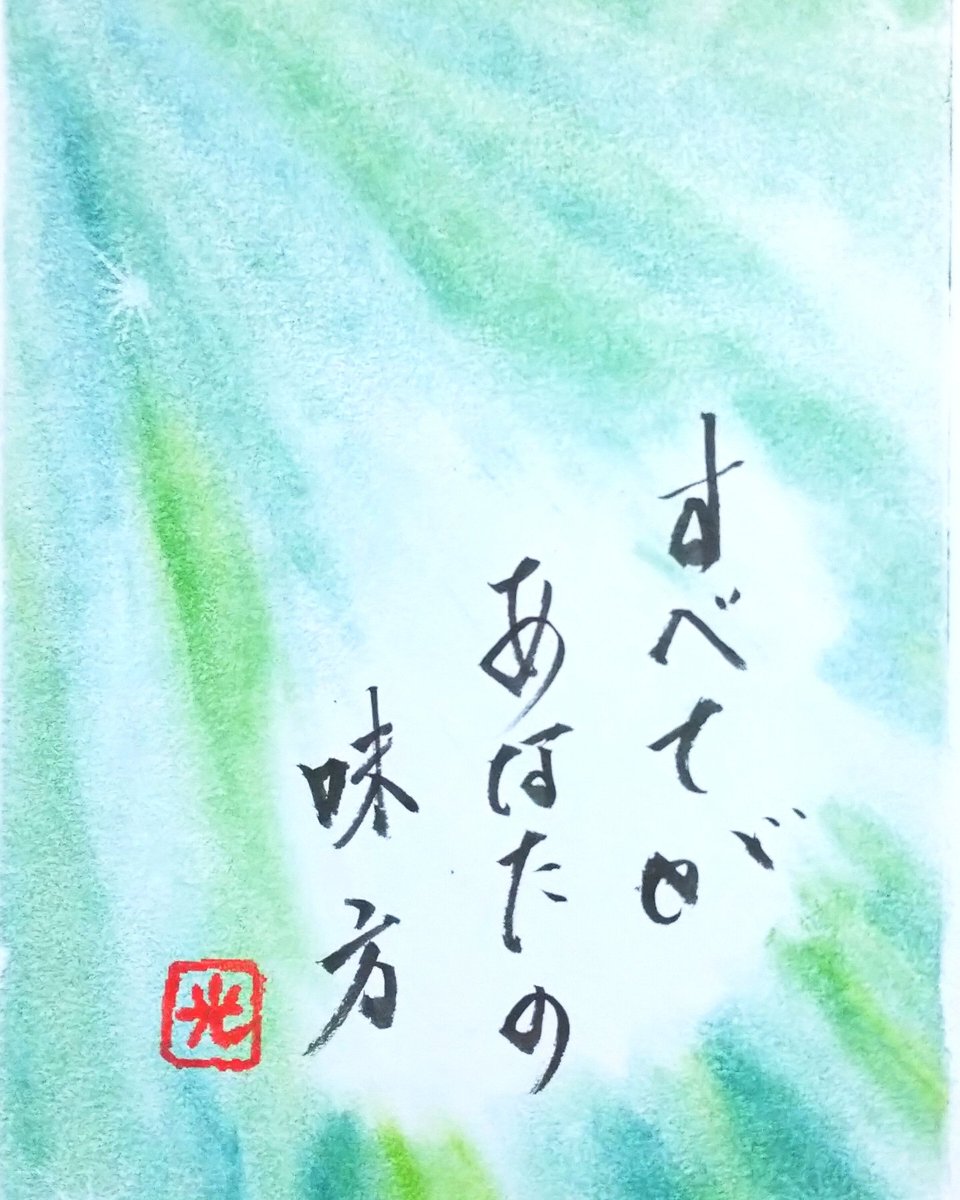 すべてが
あなたの
味方
光